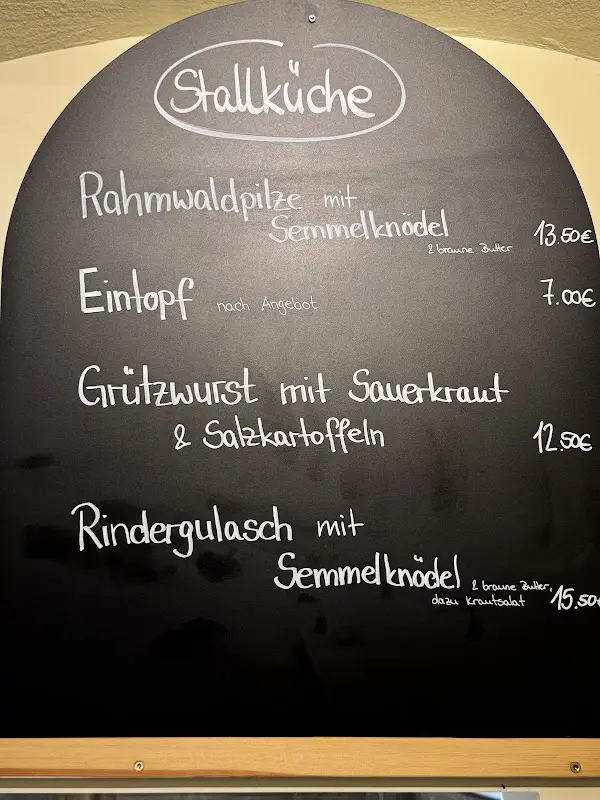 Stallküche
Rahmwaldpilze mit
Semmelknödel
& braune Butter 13.50€
Eintopf nach Angebot 7.00€
Grützwurst mit Sauerkraut
& Salzkartoffeln 12.50€
Rindergulasch mit
Semmelknödel & braune Butter,
dazu Krautsalat 15.50€